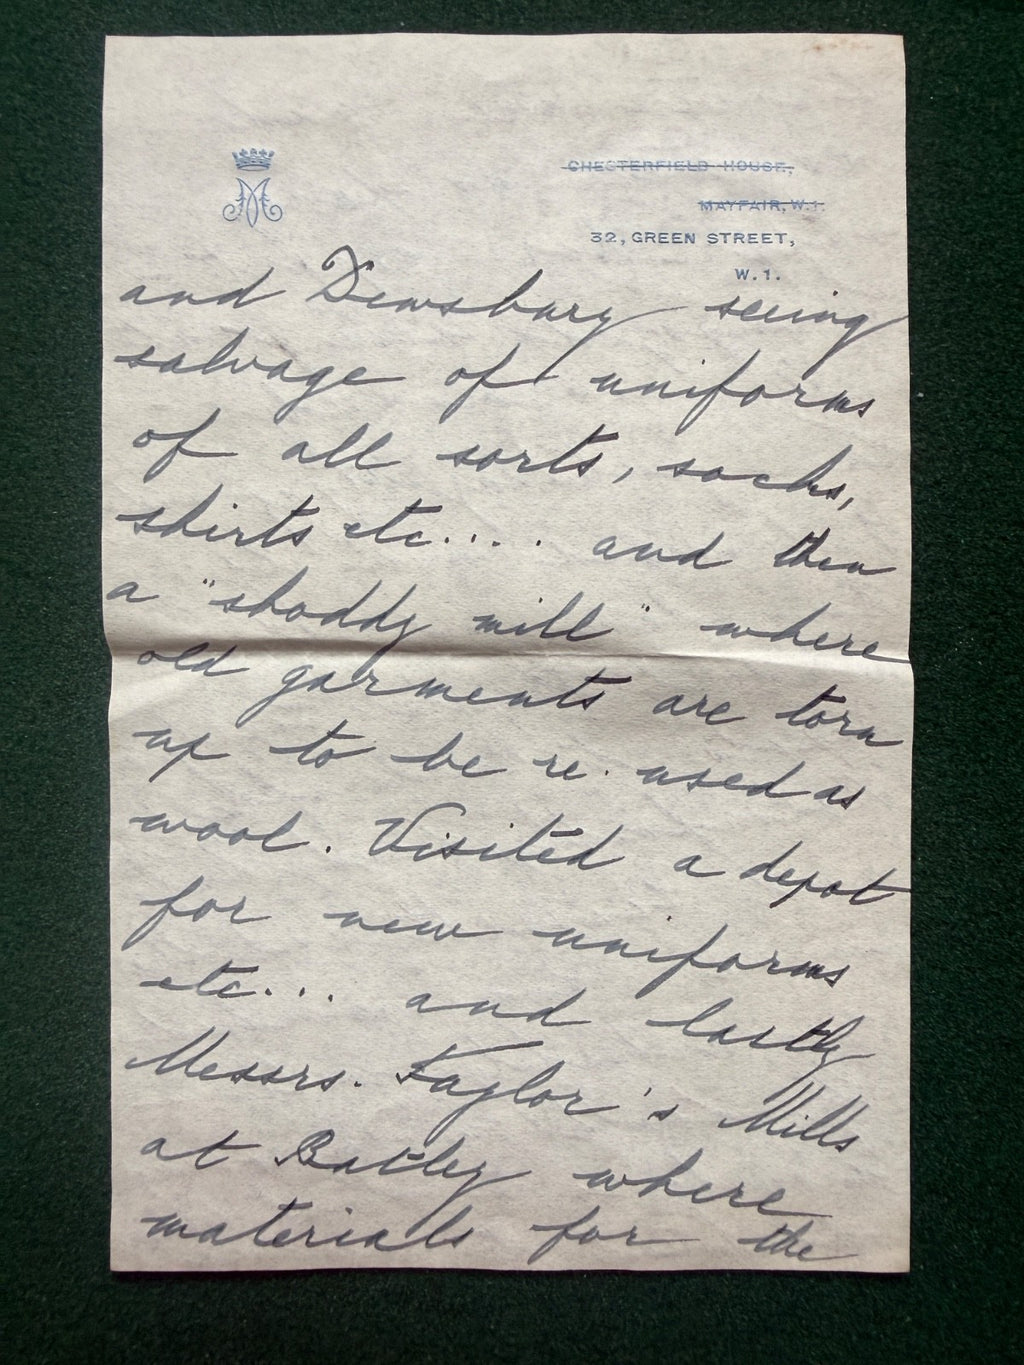 CHESTERFIELD HOUSE,
MAYFAIR, W.1.
32, GREEN STREET,
W.1.
and Dewsbury seeing
salvage of uniforms
of all sorts, socks,
shirts etc.... and then
a "shoddy mill" where
old garments are torn
up to be re-used as
wool. Visited a depot
for new uniforms
etc... and lastly
Messrs. Taylor's Mills
at Batley where
materials for the